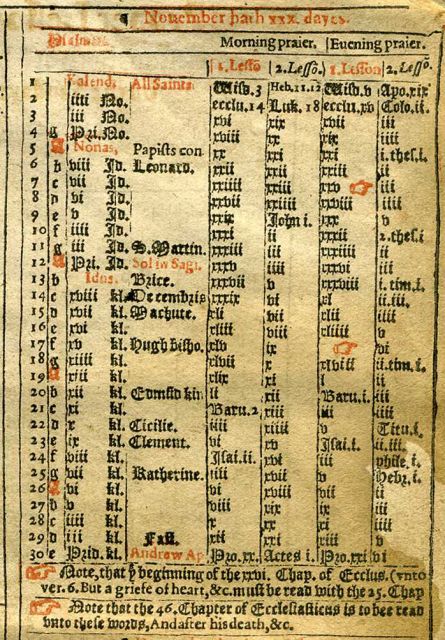 Nouember hath xxx. dayes.
Psalmes Morning praier. Euening praier.
1. Lessō 2. Lessō. 1. Lesson 2. Lessō.
1 Kalend. All Saints Wisd. 3 Heb.11.12 Wisd. v Apo.xix
2 iiii No. ecclu.14 Luk. 18 ecclu.xv Colo.ii.
3 iii No. xvi xix xvii iii
4 g Pri.No. xviii xx xix iiii
5 A Nonas, Papists con xx xxi xxi i.thes.i
6 b viii Id. Leonard. xxii xxii xxiii ii
7 c vii Id. xxiiii xxiii xxv iii
8 d vi Id. xxvii xxiiii xxviii iiii
9 e v Id. xxix John i. xxx v
10 f iiii Id. xxxi ii xxxii 2.thes.i
11 g iii Id. S.Martin. xxxiii iii xxxiiii ii
12 A Pri. Id. Sol in Sagi. xxxv iiii xxxvi iii
13 b Idus. Brice. xxxvii v xxxviii i.tim.i
14 c xviii kl. Decembris xxxix vi xl ii.iii.
15 d xvii kl. Machute. xli vii xlii iiii
16 e xvi kl. xliii viii xliiii v
17 f xv kl. Hugh bisho. xlv ix vi
18 g xiiii kl. xlvii x xlviii ii.tim.i.
19 A xiii kl. xlix xi l ii
20 b xii kl. Edmūd kin li xii Baru.i. iii
21 c xi kl. Baru.2 xiii iii iiii
22 d x kl. Cicilie. iiii xiiii v Titu.i.
23 e ix kl. Clement. vi xv Isai.i. ii.iii.
24 f viii kl. Isai.ii. xvi iii phile.i.
25 g vii kl. Katherine. iiii xvii v Hebr.i.
26 A vi kl. vi xviii vii ii
27 b v kl. viii xix ix iii
28 c iiii kl. x xx xi iiii
29 d iii kl. Fast. xii xxi xiii v
30 e Prid. kl. Andrew Ap Pro.xx. Actes i. Pro.xxi vi
Note, that yᵉ beginning of the xxvi. Chap. of Ecclus. (vnto
ver. 6. But a griefe of heart, &c. must be read with the 25. Chap
Note that the 46. Chapter of Ecclesiasticus is to bee read
vnto these words, And after his death, &c.